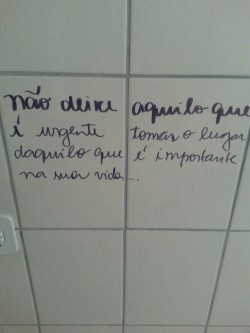 não deixe aquilo que
é urgente tomar o lugar
daquilo que é importante
na sua vida...